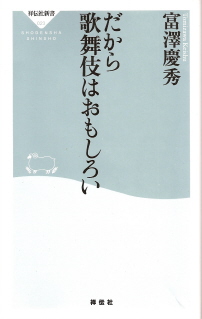 祥伝社新書
SHODENSHA
SHINSHO
富澤慶秀
Tomizawa Keishu
だから
歌舞伎はおもしろい
祥伝社